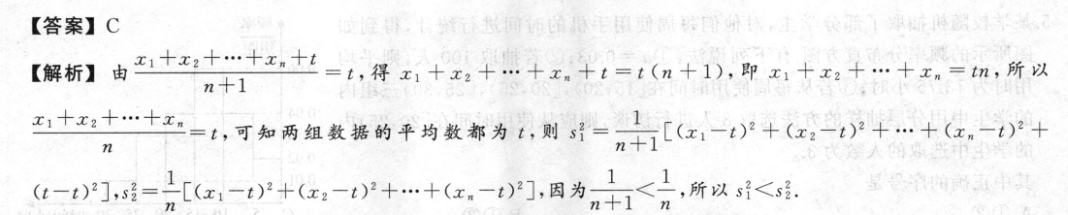 【答案】C
【解析】由 $\frac{x_1+x_2+\cdots+x_n+t}{n+1}=t$,得 $x_1+x_2+\cdots+x_n+t=t(n+1)$,即 $x_1+x_2+\cdots+x_n=tn$,所以
$\frac{x_1+x_2+\cdots+x_n}{n}=t$,可知两组数据的平均数都为 $t$,则 $s_1^2=\frac{1}{n+1}[(x_1-t)^2+(x_2-t)^2+\cdots+(x_n-t)^2+$
$(t-t)^2]$,$s_2^2=\frac{1}{n}[(x_1-t)^2+(x_2-t)^2+\cdots+(x_n-t)^2]$,因为$\frac{1}{n+1}<\frac{1}{n}$,所以 $s_1^2<s_2^2$.